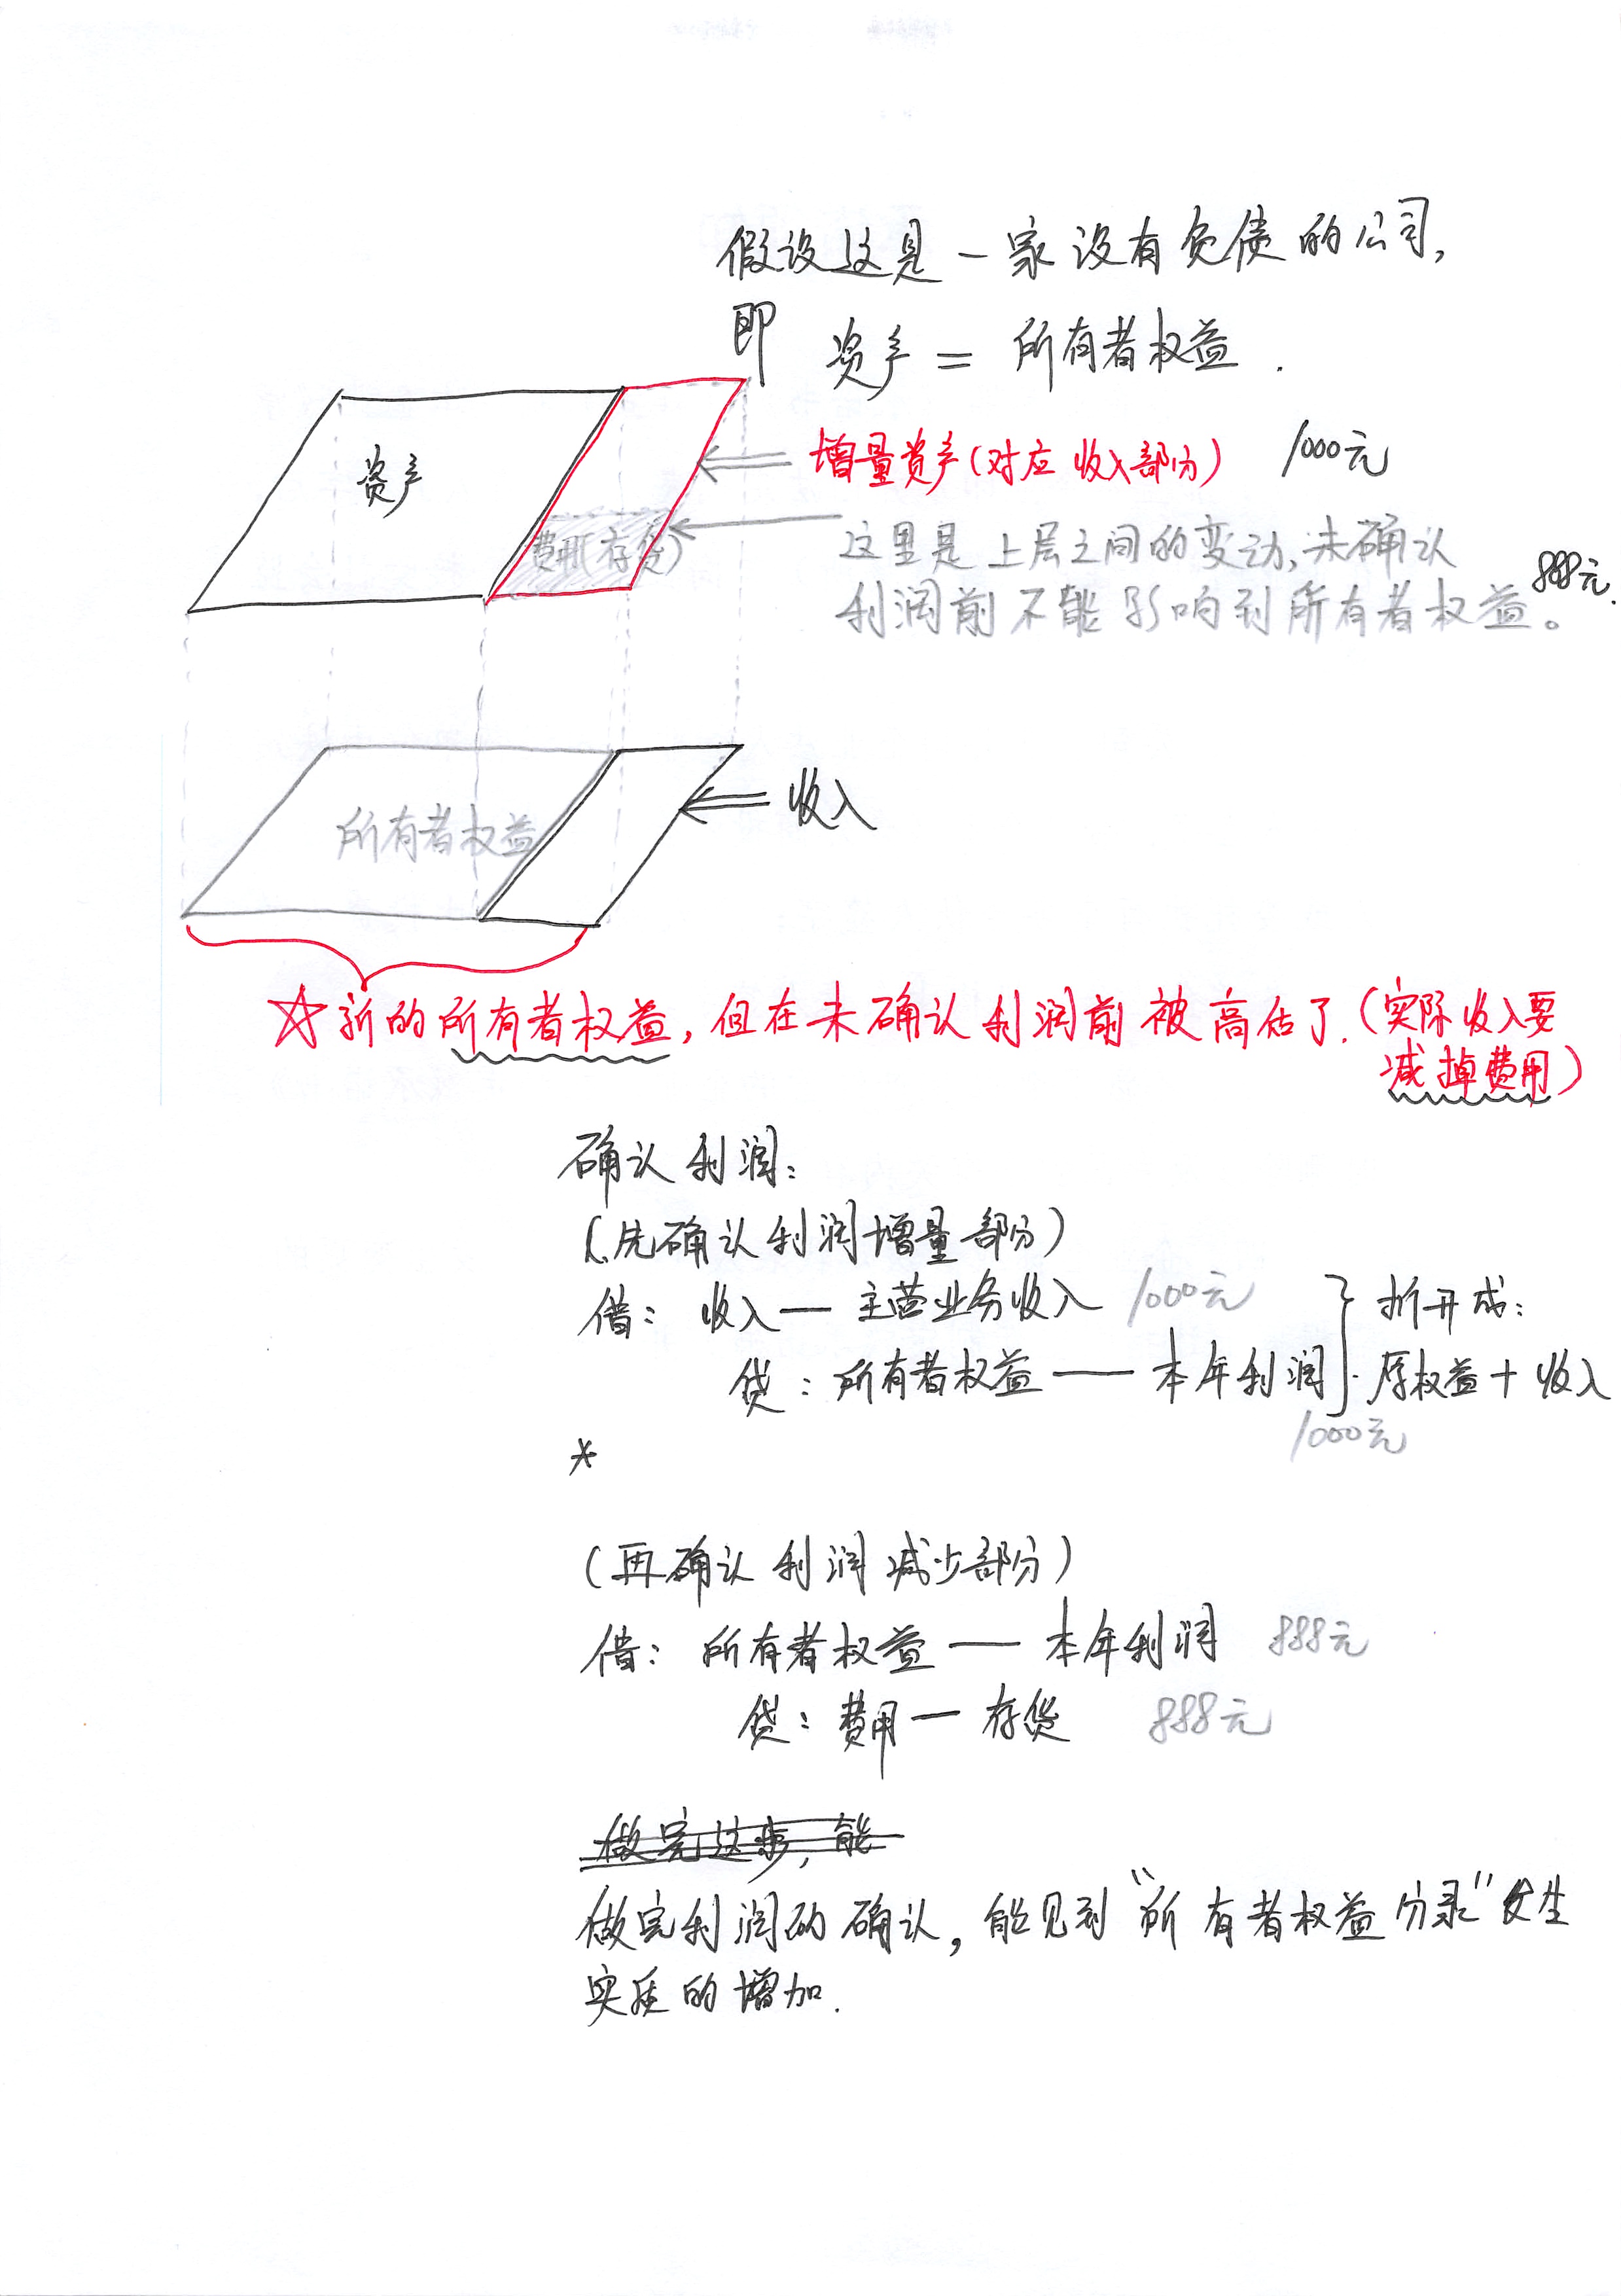 假设这是一家没有负债的公司,
即 资产 = 所有者权益.
资产
增量资产(对应收入部分) 1000元
费用(存货)
这里是上层之间的变动,未确认
利润前不能影响到所有者权益。 888元.
所有者权益
收入
☆新的所有者权益,但在未确认利润前被高估了.(实际收入要
减掉费用)
确认利润:
(先确认利润增量部分)
借: 收入 — 主营业务收入 1000元
贷: 所有者权益 — 本年利润
1000元
拆开成:
原权益 + 收入
*
(再确认利润减少部分)
借: 所有者权益 — 本年利润 888元
贷: 费用 — 存货 888元
做完这步,能
做完利润的确认,能见到“所有者权益分录”发生
实质的增加.